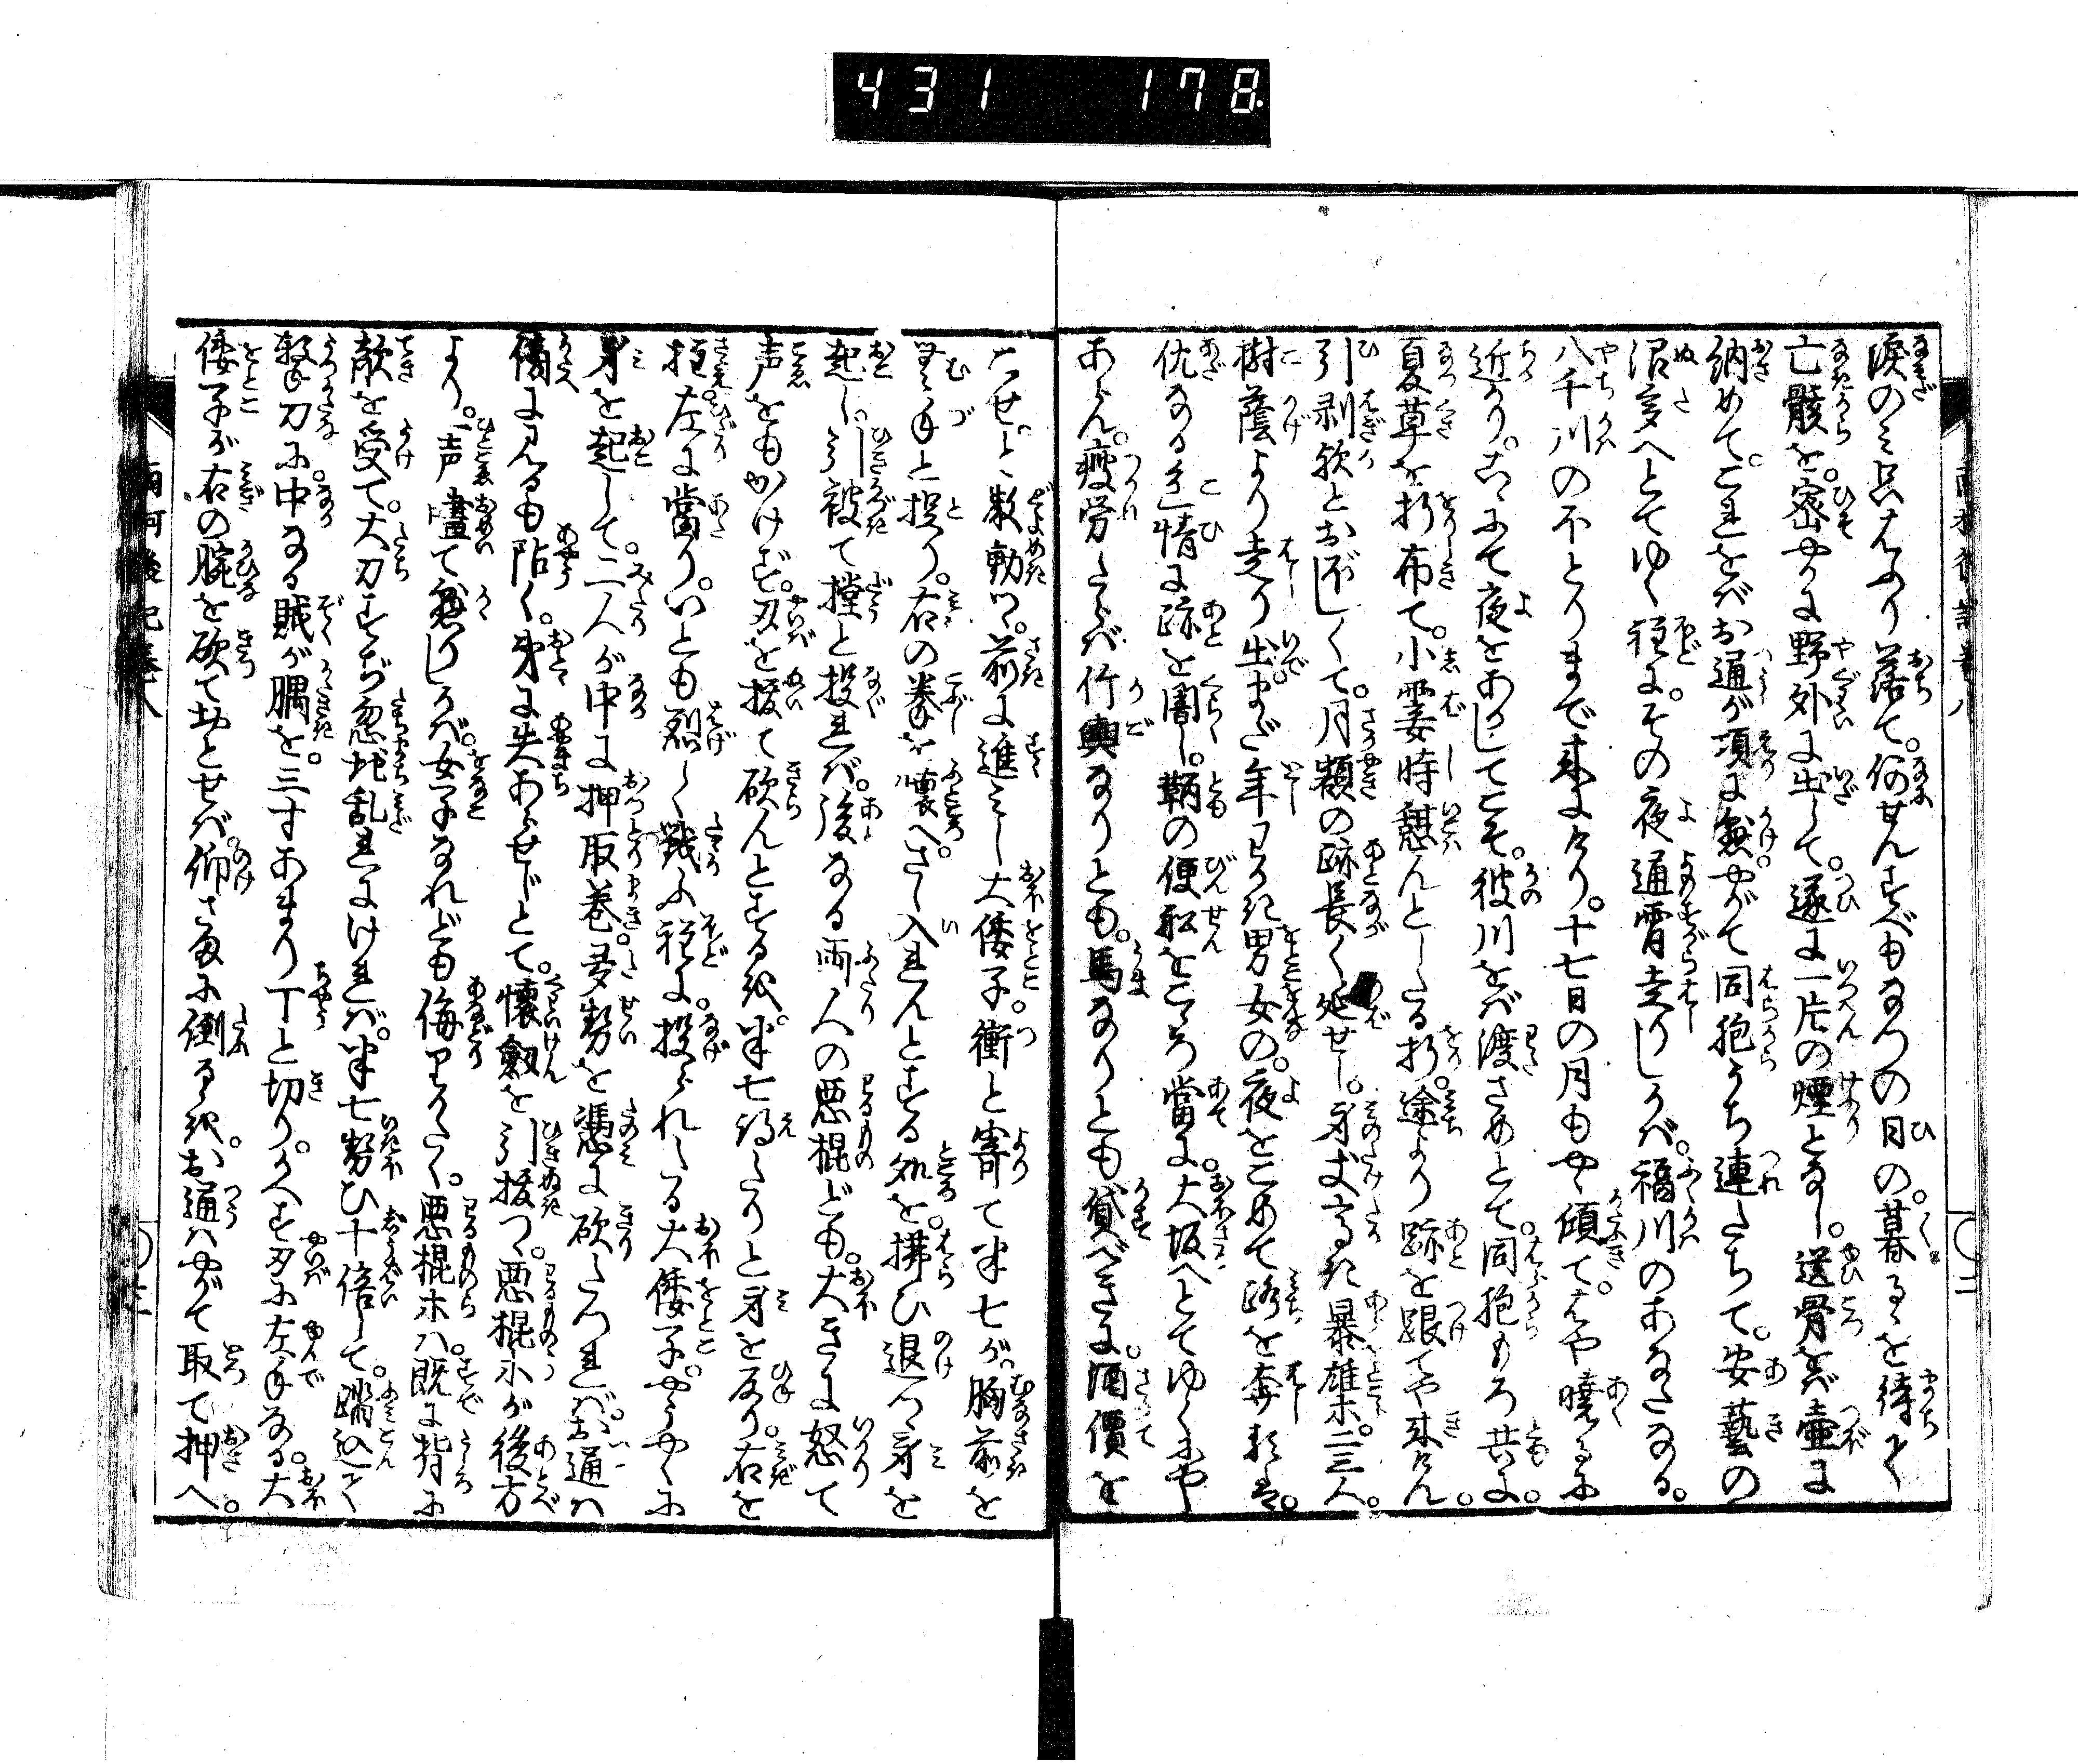 431 178
涙のミ只はふり落て。何せんすべもなつの日の。暮るゝを待て
亡骸を。密やかに野外に出して。遂に一片の煙となし。送骨をバ壷に
納めて。これをバお通が項に懸。やがて同胞うち連たちて。安藝の
沼多へとてゆく程に。その夜通宵走りしかバ。福川のあなたなる。
八千川の不とりまで来にけり。十七日の月もやゝ傾て。はや暁るに
近かり。こゝにて夜をあかしてこそ。彼川をバ渡さめとて。同胞もろ共に。
夏草を折布て。小霎時憩んとしたる折。途より跡を跟てや来けん。
引剥欤とおぼしくて。月額の跡長く延せし。身丈高き暴雄ホ。二三人。
樹蔭より走り出。まだ年わかき男女の。夜をこめて路を奔るハ。
仇なる色情に跡を闇し。鞆の便船をこゝろ當に。大坂へとてゆくにや
あらん。疲労たらバ竹輿なりとも。馬なりとも貸べきに。酒價を
たせ。と敦圉ツ。前に進ミし大倭子。衝と寄て半七が。胸前を
無手と捉り。右の拳を懐へ。さし入れんとする処を。拂ひ退つゝ身を
起し。引被て撑と投れバ。後なる両人の悪棍ども。大きに怒て
声をもかけず。刃を抜て砍んとするを。半七得たりと身を反り。右を
拄左に當り。いとも烈しく戦ふ程に。投られたる大倭子。やうやくに
身を起して。二人が中に押取巻。多勢を憑に砍たつれバ。お通ハ
傍に見るも阽く。弟に失あらせじとて。懐劔を引抜つゝ。悪棍ホが後方
より。一声嚄て懸りしかバ。女子なれども侮りがたく。悪棍ホハ既に背に
敵を受て。大刀すぢ忽地乱れにけれバ。半七勢ひ十倍して。踏込て
撃刀に。中なる賊が髃を。三寸あまり丁と切り。かへす刃に左手なる。大
倭子が右の腕を砍て堕とせバ。仰さまに倒るゝを。お通ハやがて取て押へ。